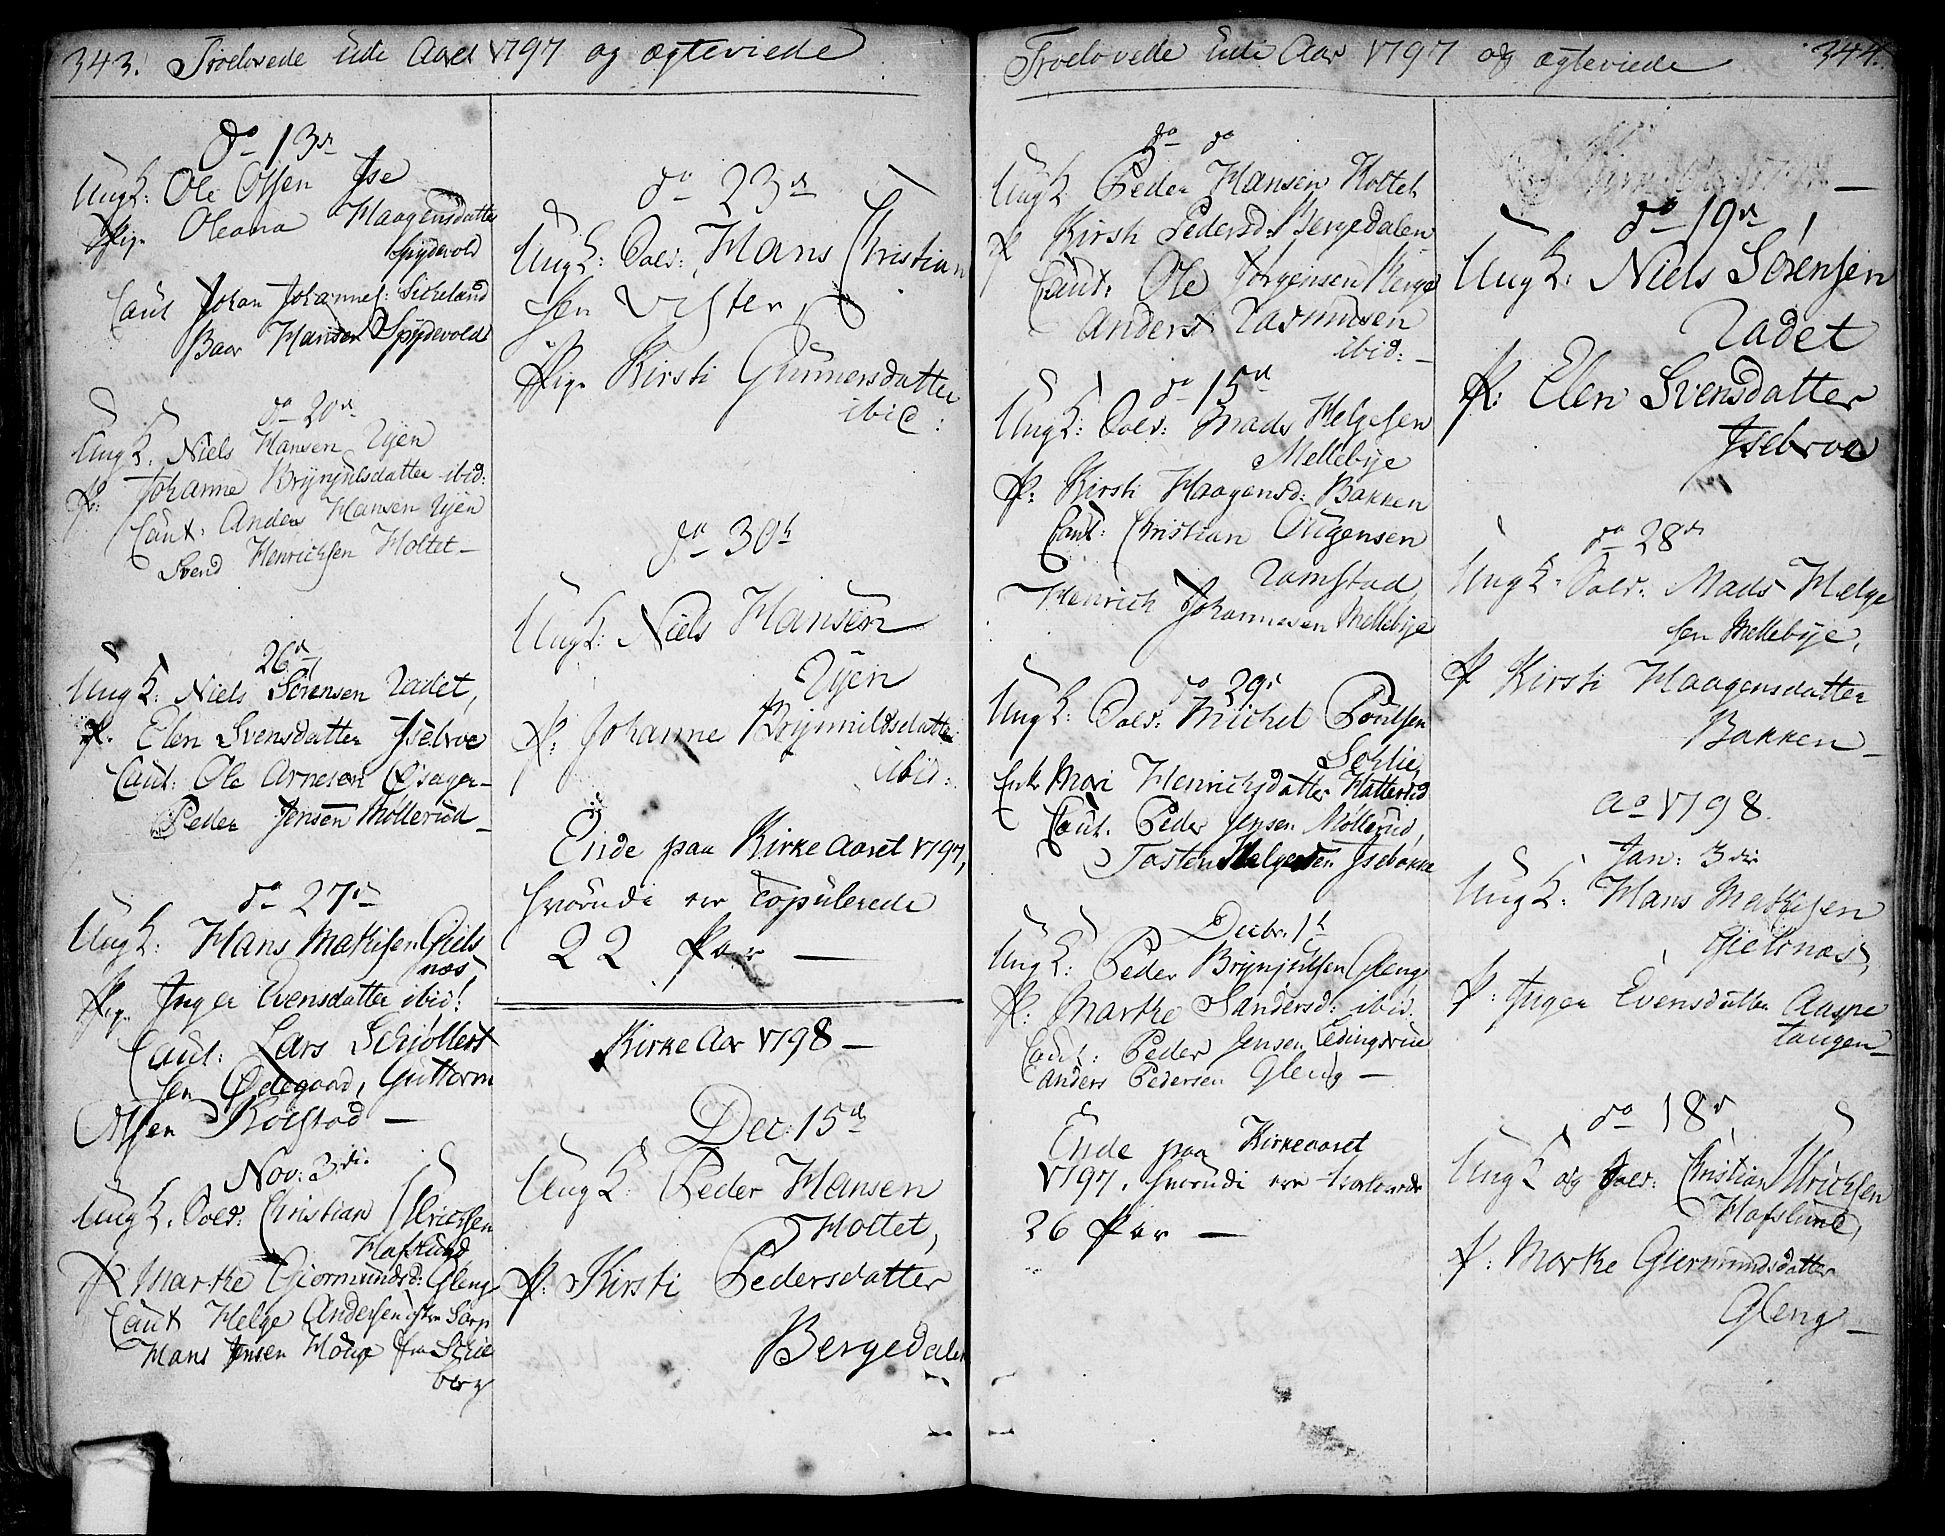 343. Troelovede udi Aaret 1797 og ægteviede
do 13de
Ungk: Ole Olsen Ise
Pig. Oleana Haagensdatter
Spydevold
Caut Johan Johannes: Sikeland
Baar Hansen Spydevold
do 20de
Ungk. Niels Hansen Ryen
P: Johanne Brynjulsdatter ibid:
Caut: Anders Hansen Ryen
Svend Henrichsen Holtet
26de
Ungk: Niels Sörensen Radet,
P. Elen Svensdatter Isebroe
Caut: Ole Arnesen
Peder Jensen Möllerud
do 27de
Ungk: Hans Mathisen Giels
næs,
Pig. Inger Evensdatter ibid:
Caut: Lars Schiöllert
sen Ødegaard, Guttorm
Olsen Rolstad
Nov: 3die
Ungk. Sold: Christian Ulrichsen
Hafslund
P Marthe Giermundsd: Gleng
Caut Helge Andersen Sarp
Hans Jensen Houge fra Schie
berg
do 23de
Ungk: Sold: Hans Christian
sen Vister
Pig. Kirsti Gunnersdatter
ibid:
do 30te
Ungk: Niels Hansen
Ryen
P: Johanne Brynnildsdatter
ibid:
Ende paa Kirke Aaret 1797,
hvorudi ere Copulerede
22 Par
Kirke Aar 1798
Dec: 15de
Ungk: Peder Hansen
Holtet,
P: Kirsti Pedersdatter
Bergedalen
Troelovede udi Aar 1797 og ægteviede 344.
do do
Ungk Peder Hansen Holtet
P Kirsti Pedersd: Bergedalen
Caut. Ole Jörgensen Berge
Anders Rasmusen
ibid:
do 15de
Ungk: Sold: Mads Helgesen
Mellebye
P: Kirsti Haagensd: Bakken
Caut: Christian
Ramstad,
Henrich Johannesen Mellebye
do 29de
Ungk: Sold: Michel Poulsen
Sohlie,
Enk Mari Henrichsdatter Hatterud
Caut. Peder Jensen Möllerud,
Tosten Helgesen
Decbr: 1te
Ungk: Peder Brynjulsen Gleng
P: Marthe Sandersd: ibid.
Caut: Peder Jensen
Anders Pedersen Gleng
Ende paa Kirkeaaret
1797, hvorudi ere trolovede
26 Par
do 19de
Ungk: Niels Sörensen
Radet
P: Elen Svensdatter
Isebroe
do 28de
Ungk: Sold: Mads Helge
sen Mellebye,
P Kirsti Haagensdatter
Bakken
Ao 1798.
Jan: 3die
Ungk: Hans Mathisen
Gielsnæs,
P: Inger Evensdatter Aaspe
tangen
do 18de
Ungk og Sold: Christian Ulrichsen
Hafslund,
P: Marthe Giermundsdatter
Gleng